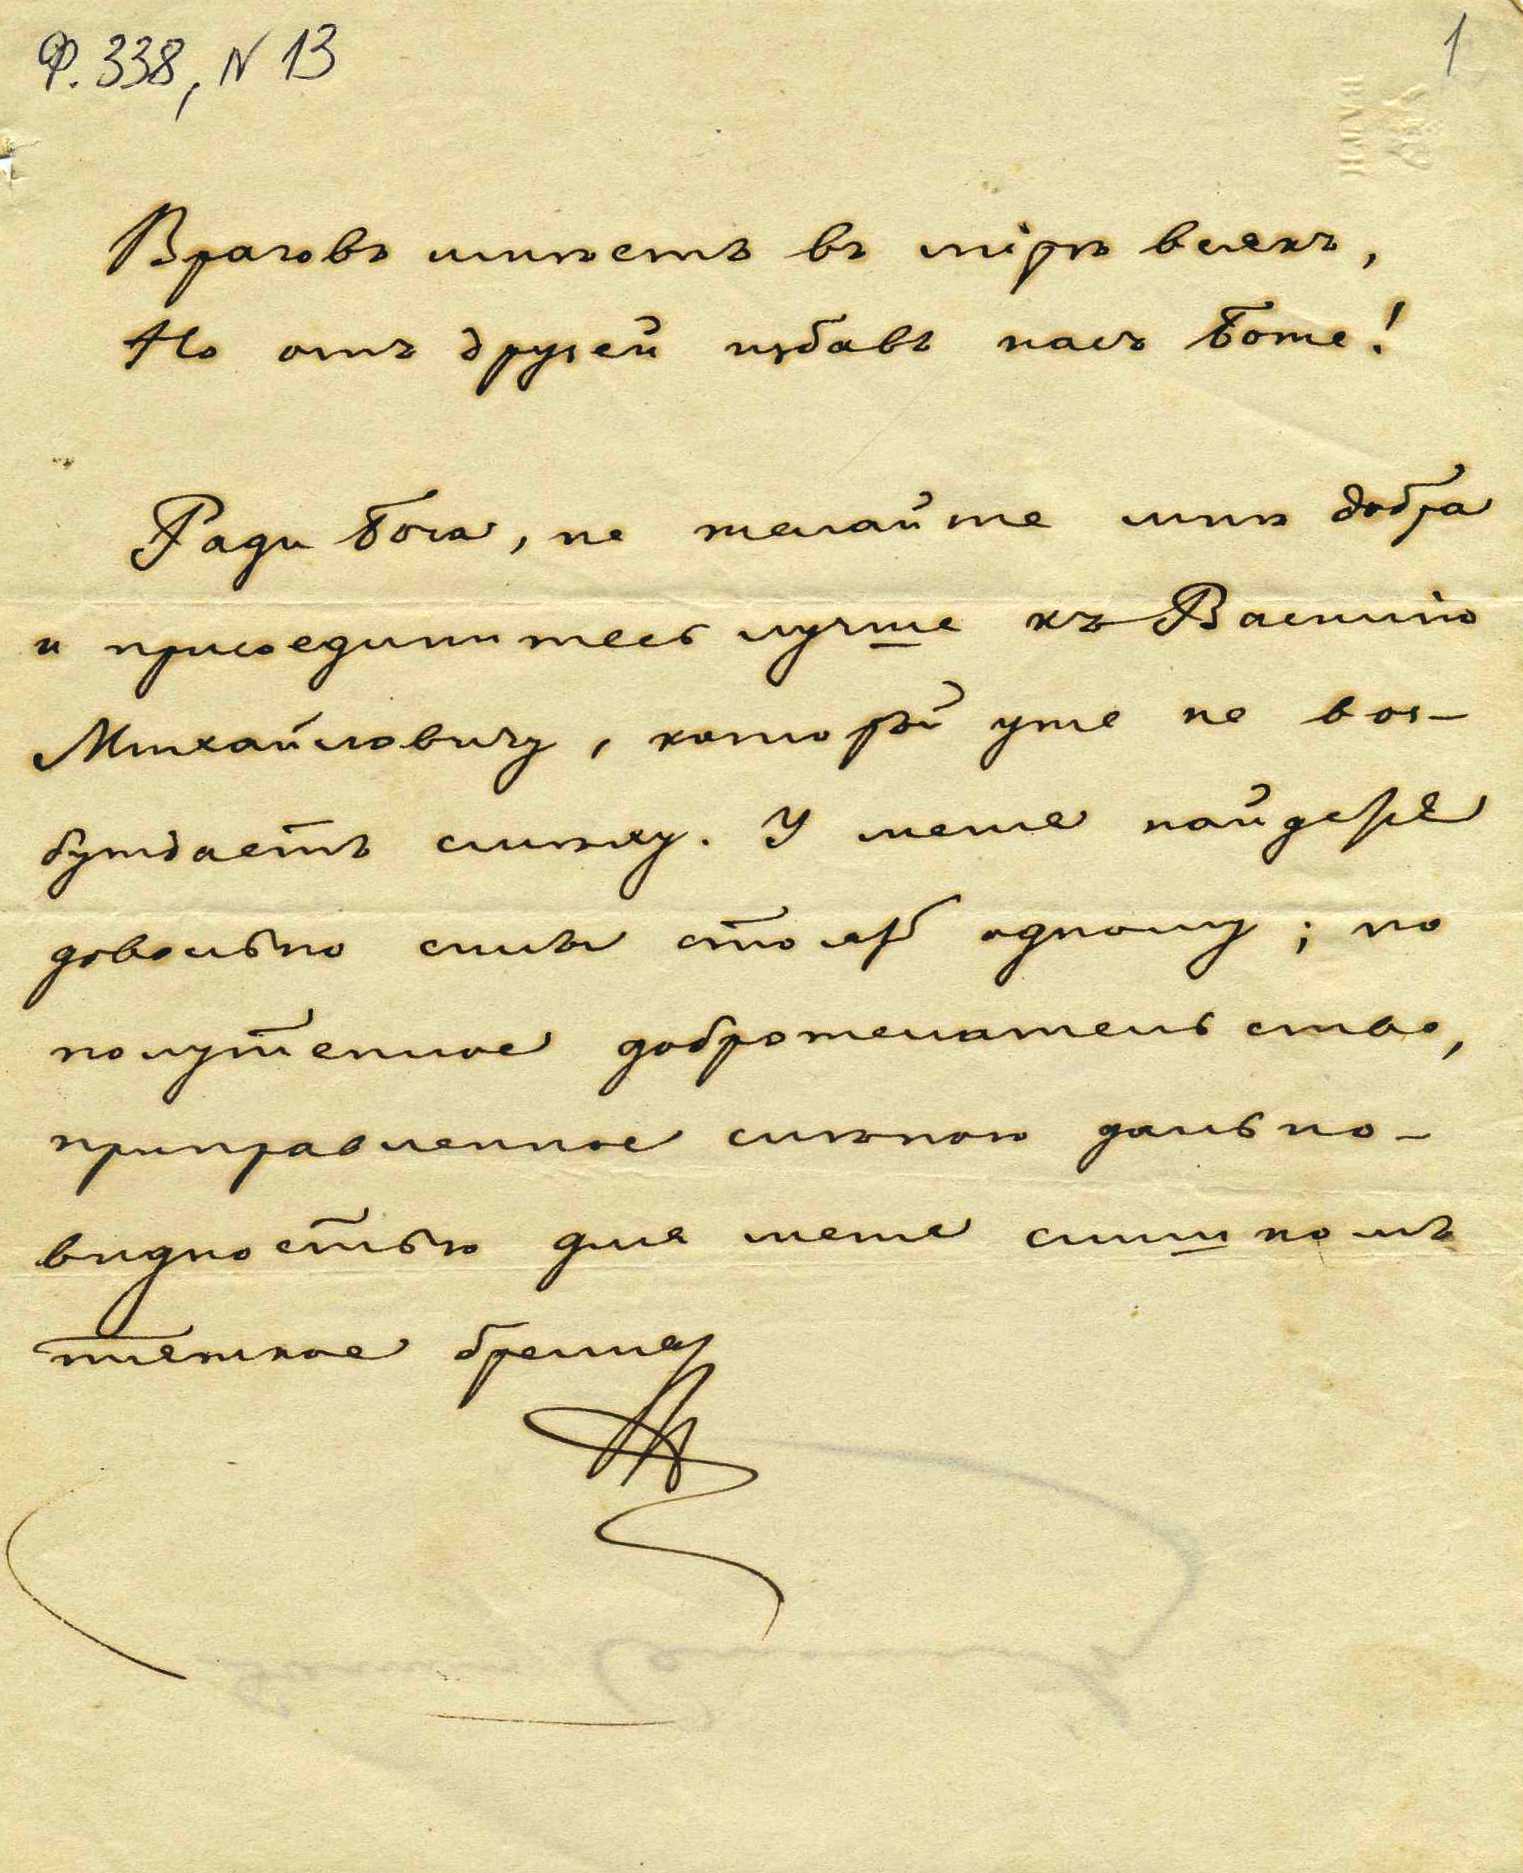 Ф. 338, N 13
1
Враговъ имѣетъ въ мірѣ всякъ,
Но отъ друзей избавь насъ Боже!
Ради Бога, не желайте мнѣ добра
и присоединитесь лучше къ Василію
Михайловичу, который уже не воз-
буждаетъ смѣху. У меня найдется
довольно силы стоять одному; но
доброжелательство,
приправленное слѣпою дально-
видностью для меня слишкомъ
тяжкое бремя